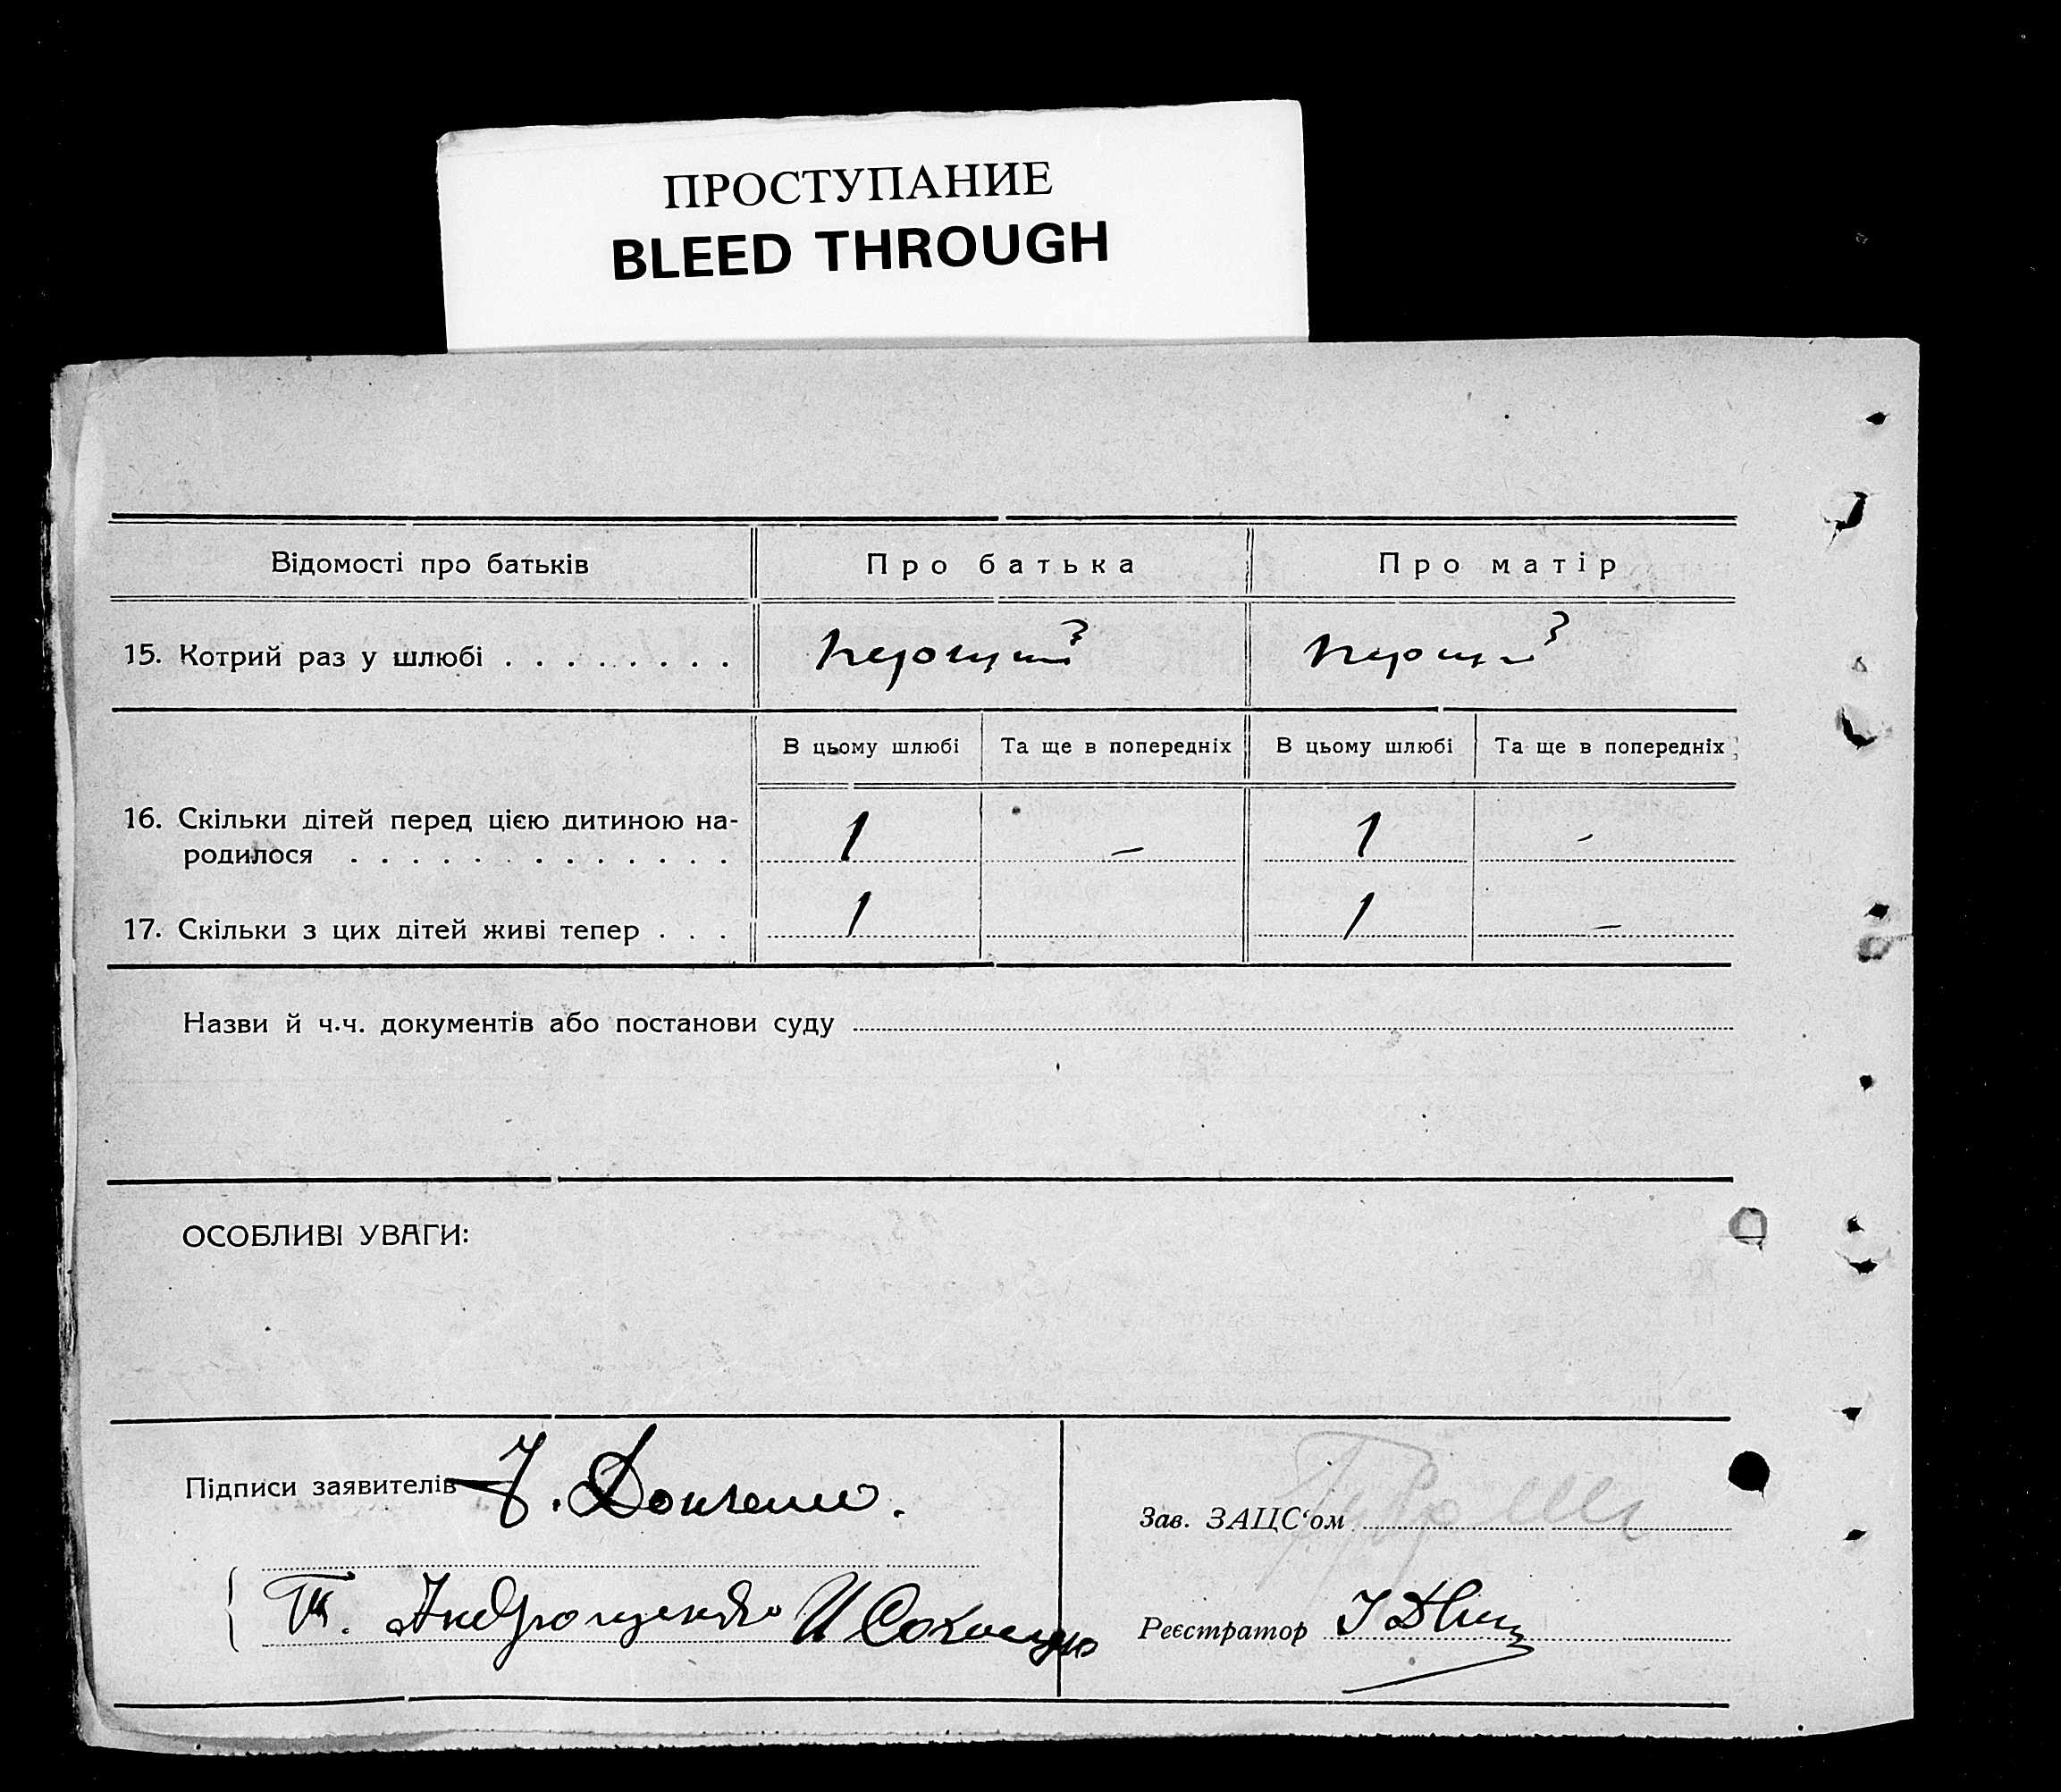 ПРОСТУПАНИЕ
BLEED THROUGH
Відомості про батьків Про батька Про матір
15. Котрий раз у шлюбі . . . . . . . . перший перший
В цьому шлюбі Та ще в попередніх В цьому шлюбі Та ще в попередніх
16. Скільки дітей перед цією дитиною на-
родилося . . . . . . . . . . . . . 1 — 1 -
17. Скільки з цих дітей живі тепер . . . 1 1 —
Назви й ч.ч. документів або постанови суду
ОСОБЛИВІ УВАГИ:
Підписи заявителів
Зав. ЗАЦС‘ом
Т. Андрющенко
Реєстратор